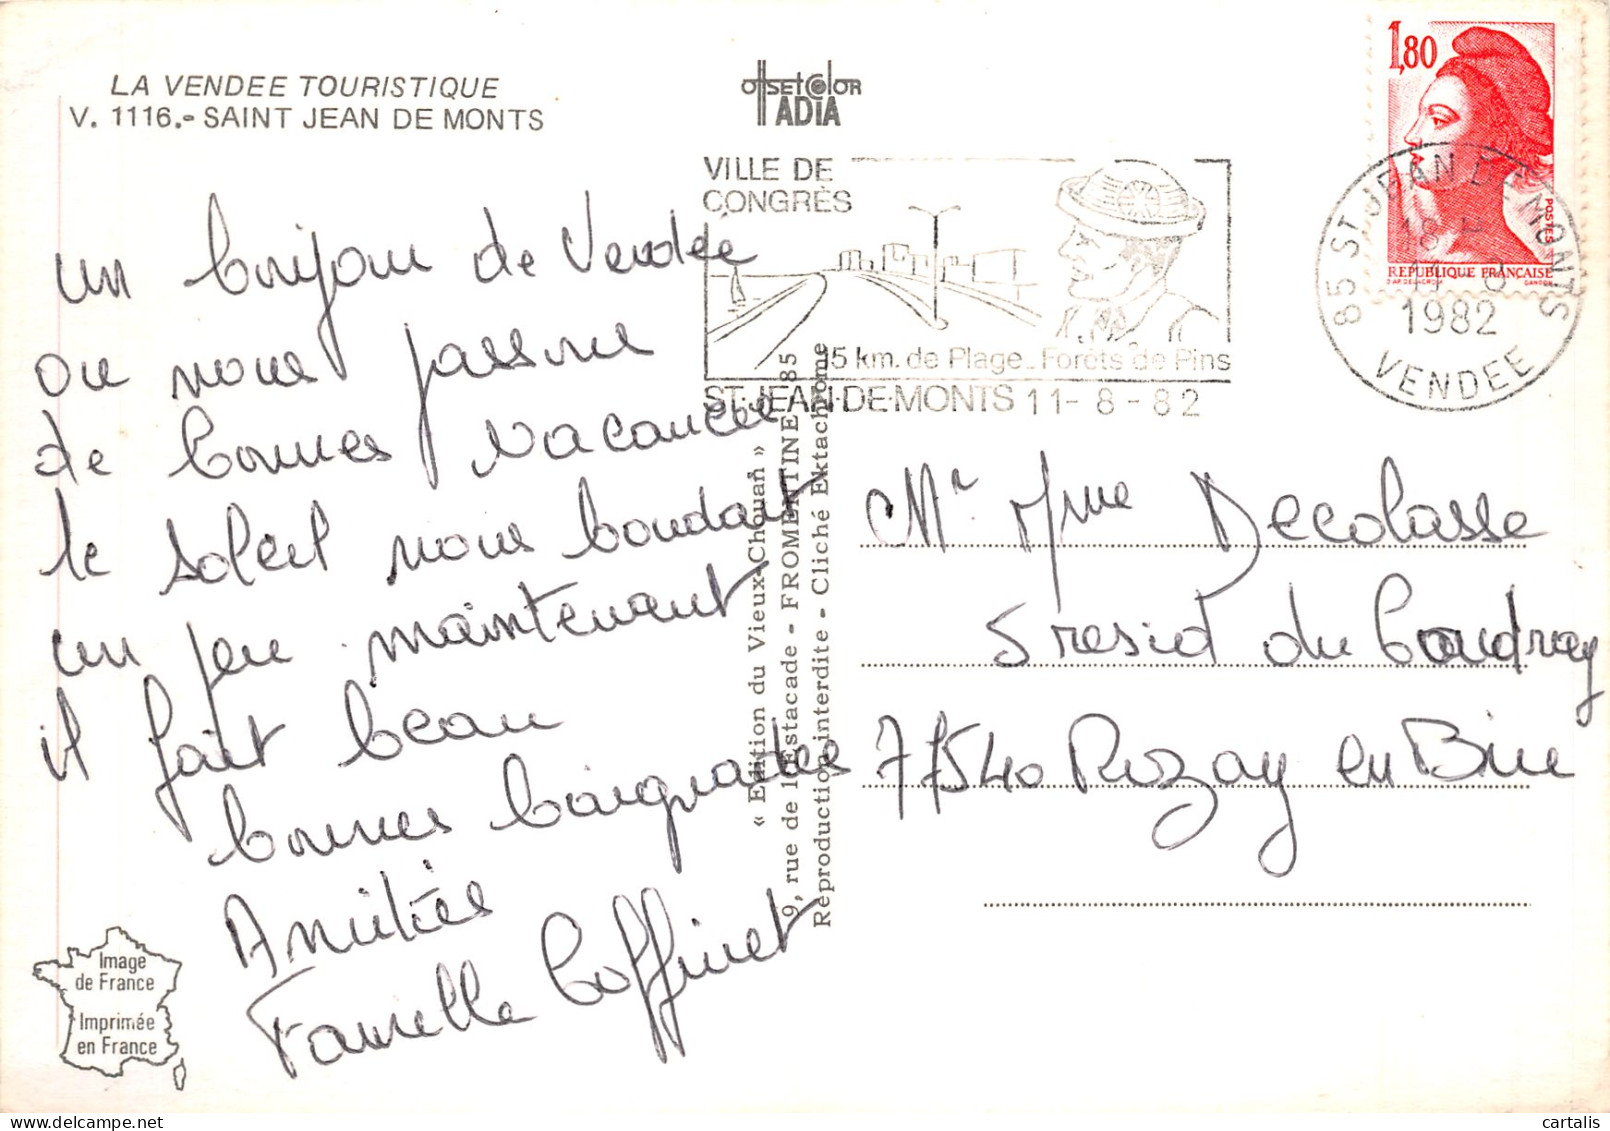 LA VENDEE TOURISTIQUE
V. 1116.- SAINT JEAN DE MONTS
offsetcolor
ADIA
VILLE DE
CONGRÈS
15 km. de Plage_ Forêts de Pins
ST·JEAN·DE·MONTS 11-8-82
1,80
POSTES
REPUBLIQUE FRANÇAISE
D'AP. DELACROIX GANDON
85 ST JEAN DE MONTS
18 H
11-8
1982
VENDEE
un bonjour de Vendée
ou nous passons
de bonnes vacances
le soleil nous boudait
un peu maintenant
il fait beau
bonnes baignades
Amitiés
Famille Coffinet
« Edition du Vieux-Chouan »
9, rue de l'Estacade - FROMENTINE 85
Reproduction interdite - Cliché Ektachrome
Mr Mme Decolasse
5 resid du Coudray
77540 Rozay en Brie
Image
de France
Imprimée
en France
cartalis